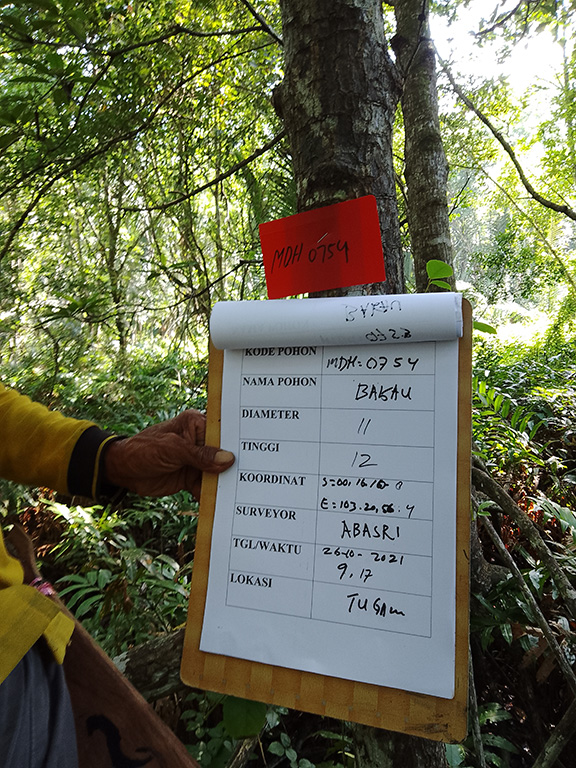 MDH 0754
BAKAU
KODE POHON MDH=0754
NAMA POHON BAKAU
DIAMETER 11
TINGGI 12
KOORDINAT S=00,16,
E=103.20,56.4
SURVEYOR ABASRI
TGL/WAKTU 26-10-2021
9,17
LOKASI TUGAM